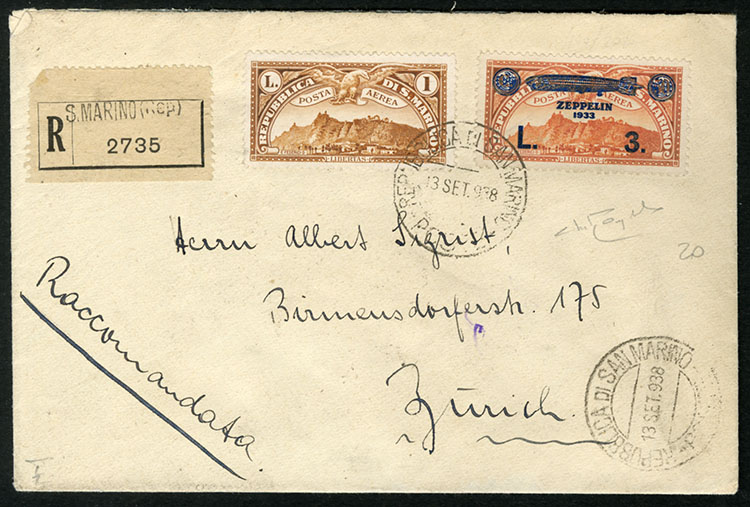 S. MARINO (Rep)
R
2735
L. 1
REPUBBLICA DI S. MARINO
POSTA AEREA
LIBERTAS
REPUBBLICA DI S. MARINO
POSTA AEREA
ZEPPELIN
1933
L. 3.
LIBERTAS
REPUBBLICA DI SAN MARINO
13 SET. 938
Herrn Albert Sigrist,
Birmensdorferstr. 175
Zürich.
Raccomandata
20
REPUBBLICA DI SAN MARINO
13 SET. 938